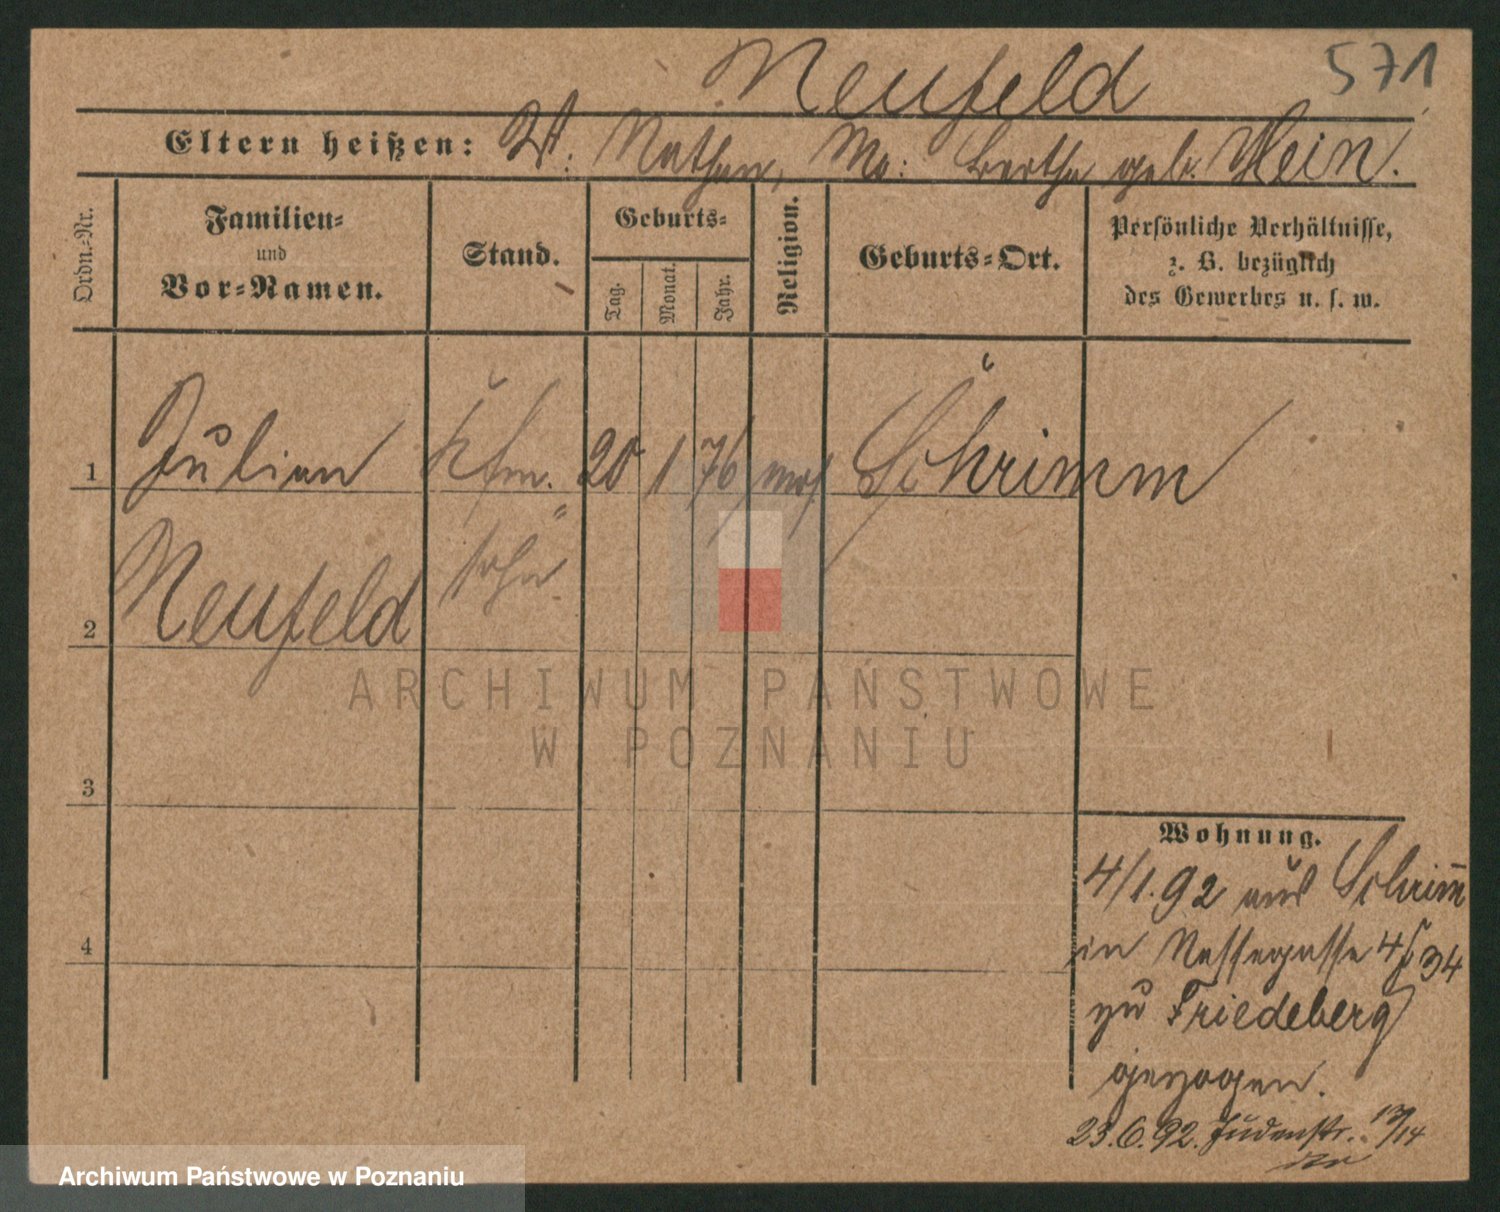 Neufeld 571
Eltern heißen: Vt: Nathan, Mo: Bertha geb. Klein.
Ordn.=Nr.
Familien=
und
Vor=Namen.
Stand.
Geburts=
Tag.
Monat.
Jahr.
Religion.
Geburts=Ort.
Persönliche Verhältnisse,
z. B. bezüglich
des Gewerbes u. s. w.
1 Julian Kfm. 20 1 76 mos Schrimm
2 Neufeld sohn
3
4
ARCHIWUM PAŃSTWOWE
W POZNANIU
Wohnung.
4/1.92 aus Schrim̄
in Nassegasse 4/34
zu Friedeberg
gezogen.
23.6.92. Judenstr. 13/14
Archiwum Państwowe w Poznaniu